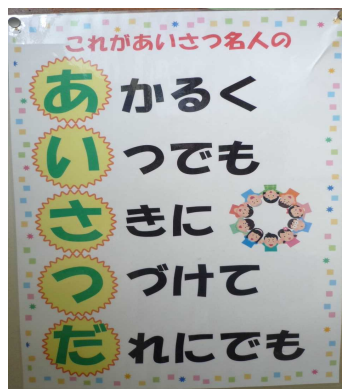 これがあいさつ名人の
あかるく
いつでも
さきに
つづけて
だれにでも